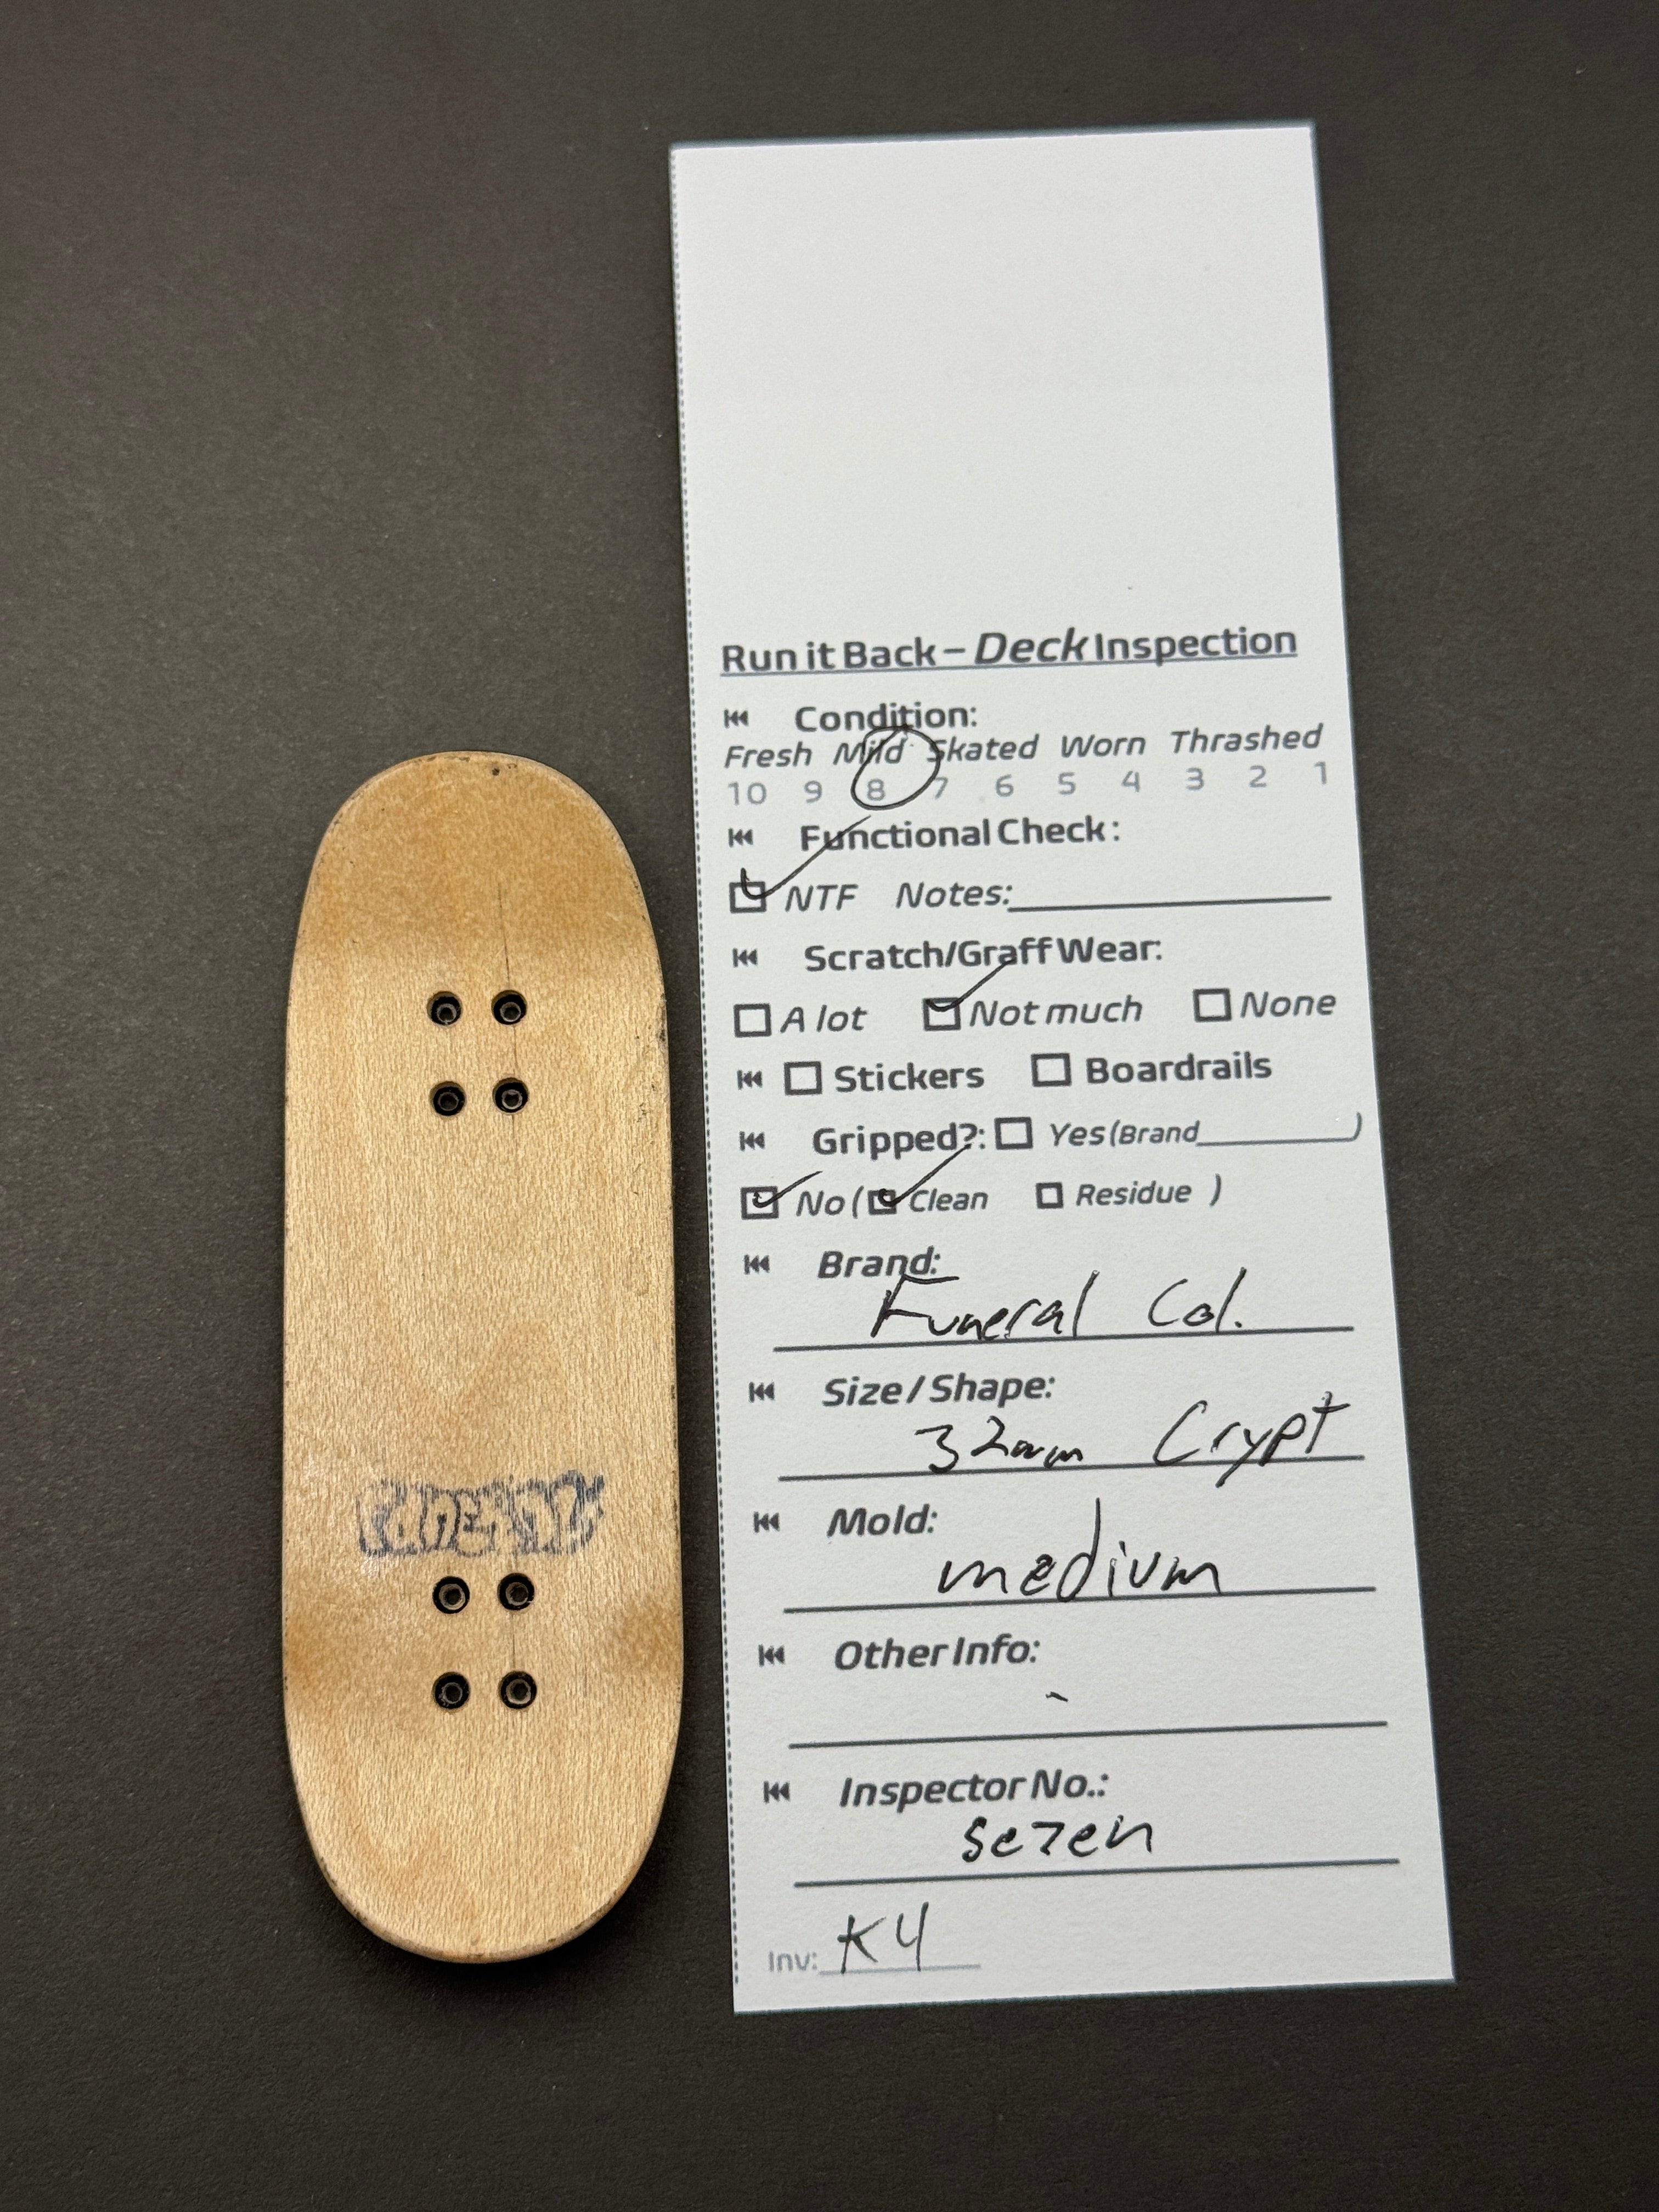 Run it Back – Deck Inspection
Condition:
Fresh Mild Skated Worn Thrashed
10 9 8 7 6 5 4 3 2 1
Functional Check:
NTF Notes:
Scratch/Graff Wear:
A lot Not much None
Stickers Boardrails
Gripped?: Yes (Brand )
No ( Clean Residue )
Brand:
Funeral Col.
Size / Shape:
32mm Crypt
Mold:
medium
Other Info:
Inspector No.:
se7en
Inv: K4